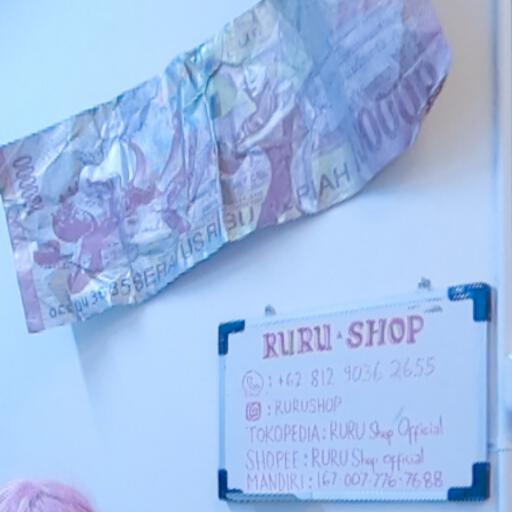 100000
100000
SERATUS RIBU RUPIAH
RURU SHOP
: +62 812 9036 2655
: RURUSHOP
TOKOPEDIA : RURU Shop Official
SHOPEE : RURU Shop official
MANDIRI : 167-007-776-7688